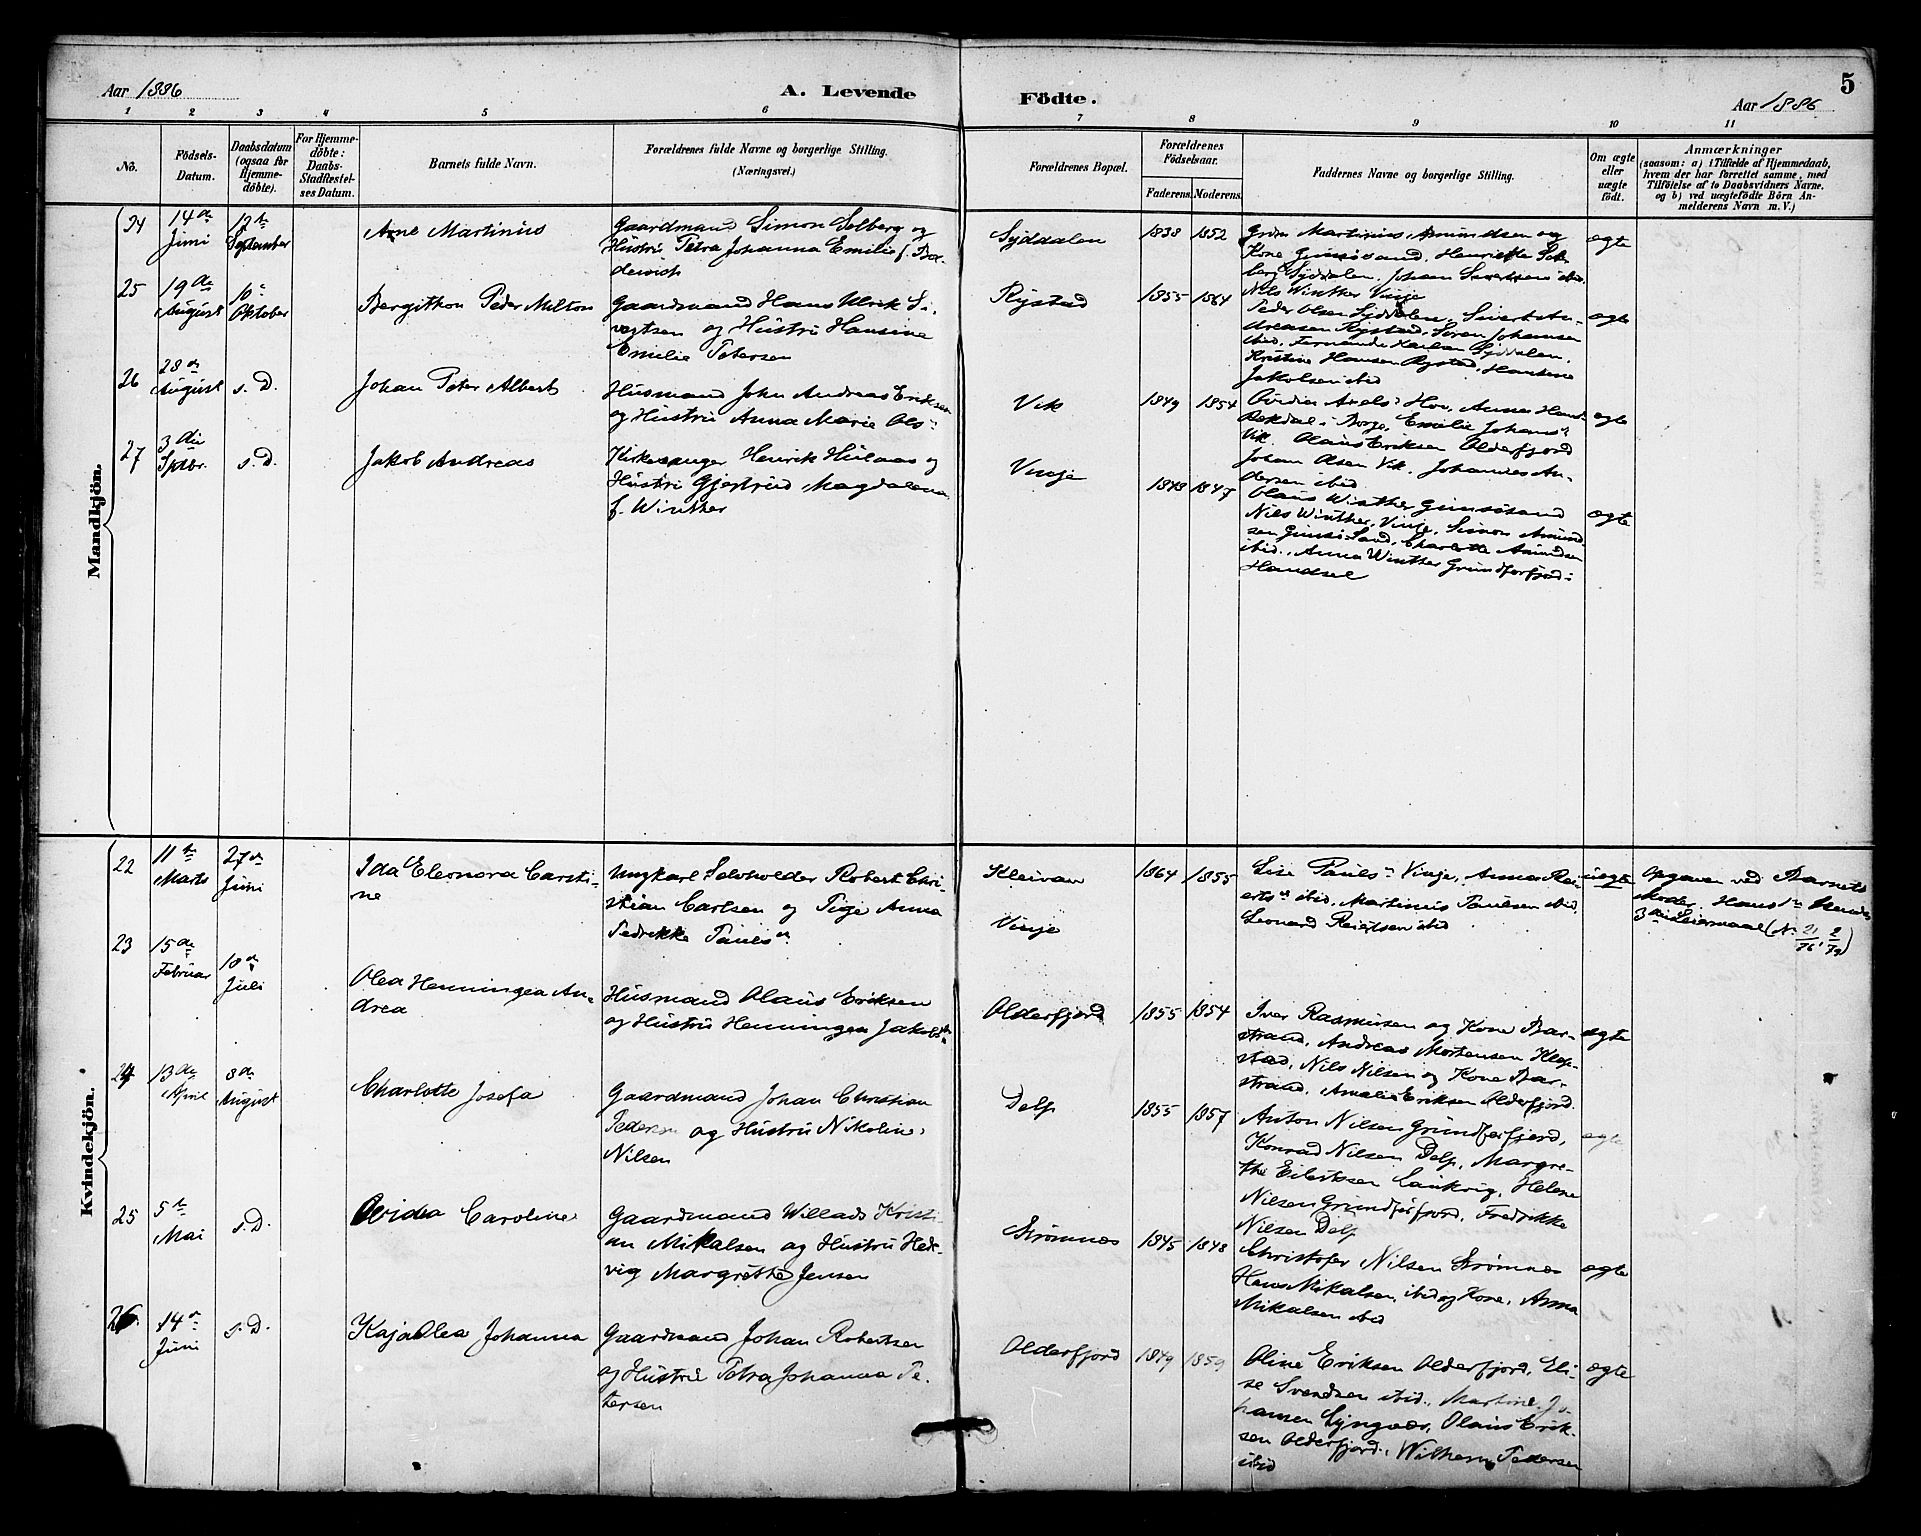 Aar 1886
A. Levende
Födte.
5
Aar 1886
1 2 3 4 5 6 7 8 9 10 11
No.
Födsels-
Datum.
Daabsdatum
(ogsaa for
Hjemme-
döbte).
For Hjemme-
döbte:
Daabs-
Stadfæstel-
ses Datum.
Barnets fulde Navn.
Forældrenes fulde Navne og borgerlige Stilling.
(Næringsvei.)
Forældrenes Bopæl.
Forældrenes
Födselsaar.
Faderens. Moderens.
Faddernes Navne og borgerlige Stilling.
Om ægte
eller
uægte
födt.
Anmærkninger
(saasom: a) i Tilfælde af Hjemmedaab,
hvem der har forrettet samme, med
Tilföielse af to Daabsvidners Navne,
og b) ved uægtefödte Börn An-
melderens Navn m. V.)
Mandkjön.
24
14de
Juni
12te
September
Arne Martinius
Gaardmand Simon Solberg og
Hustru Petra Johanna Emilie f. Bo-
dewich
Syddalen
1838 1852
Martinius Amundsen og
Kone Gimsösand, Henriette Sol-
berg Syddalen, Johan Sivertsen ibid.
Nils Winther Vinje
ægte
25
19de
August
10de
Oktober
Bergithon Peder Milton
Gaardmand Hans Ulrik Si-
vertsen og Hustru Hansine
Emilie Petersen
Rystad
1855 1864
Peder Olsen Syddalen, Sivert An-
dreasen Rystad, Søren Johansen
ibid, Fernanda Syddalen,
Kristine Hansen Rystad, Hansine
Jakobsen ibid
ægte
26
28de
August
s. D.
Johan Peter Albert
Husmand John Andreas Eriksen
og Hustru Anna Marie Ols n
Vik
1849 1854
Axels n Hov, Anna Hans n
i Borge, Emilie Johans n
Vik, Olaus Eriksen Olderfjord
Johan Olsen Vik, Johannes An-
dersen ibid
ægte
27
3die
Septbr.
s. D.
Jakob Andreas
Kirkesanger Henrik Hulaas og
Hustru Gjertrud Magdalena
f. Winther
Vinje
1848 1847
Olaus Winther Gimsösand
Nils Winther, Vinje, Simon Amund-
sen Gimsösand, Charlotte Amundsen
ibid., Anna Winther Grundførfjord i
Hadsel
ægte
Kvindekjön.
22
11te
Marts
27de
Juni
Ida Eleonora Carsti-
ne
Ungkarl Selvholder Robert Chri-
stian Carlsen og Pige Anna
Pedrikke Pauls n
Kleivan
Vinje
1864 1855
Lise Pauls n Vinje, Anna Rei-
erts n ibid, Martinus Paulsen ibid,
Leonard Reiertsen ibid
uægte
Opgaven ved Barnets
Moder. Hans 1ste Hendes
3die Leiermaal (No 21/76, 2/79)
23
15de
Februar
18de
Juli
Olea Henningea An-
drea
Husmand Olaus Eriksen
og Hustru Henningea Jakobs n
Olderfjord
1855 1854
Iver Rasmusen og Kone Bar-
strand, Andreas Mortensen Klep-
stad, Nils Nilsen og Kone Bar-
strand, Amalie Eriksen Olderfjord.
ægte
24
13de
April
8de
August
Charlotte Josefa
Gaardmand Johan Christian
Pedersen og Hustru Nikoline
Nilsen
Delp
1855 1857
Anton Nilsen Grundførfjord,
Konrad Nilsen Delp, Margre-
the Eilertsen Laukvig, Helene
Nilsen Grundførfjord, Fredrikke
Nilsen Delp
ægte
25
5te
Mai
s. D.
Ovidia Caroline
Gaardmand Willads Kristi-
an Mikalsen og Hustru Hed-
vig Margrethe Jensen
Strømnes
1845 1848
Christofer Nilsen Strømnes
Hans Mikalsen, ibid og Kone, Anna
Mikalsen ibid
ægte
26
14de
Juni
s. D.
Kaja Olea Johanna
Gaardmand Johan Robertsen
og Hustru Petra Johanna Pe-
tersen
Olderfjord
1849 1859
Oline Eriksen Olderfjord, Eli-
se Svendsen ibid., Martine Jo-
hansen Lyngvær, Olaus Erik-
sen Olderfjord, Wilhelm Pedersen
ibid
ægte